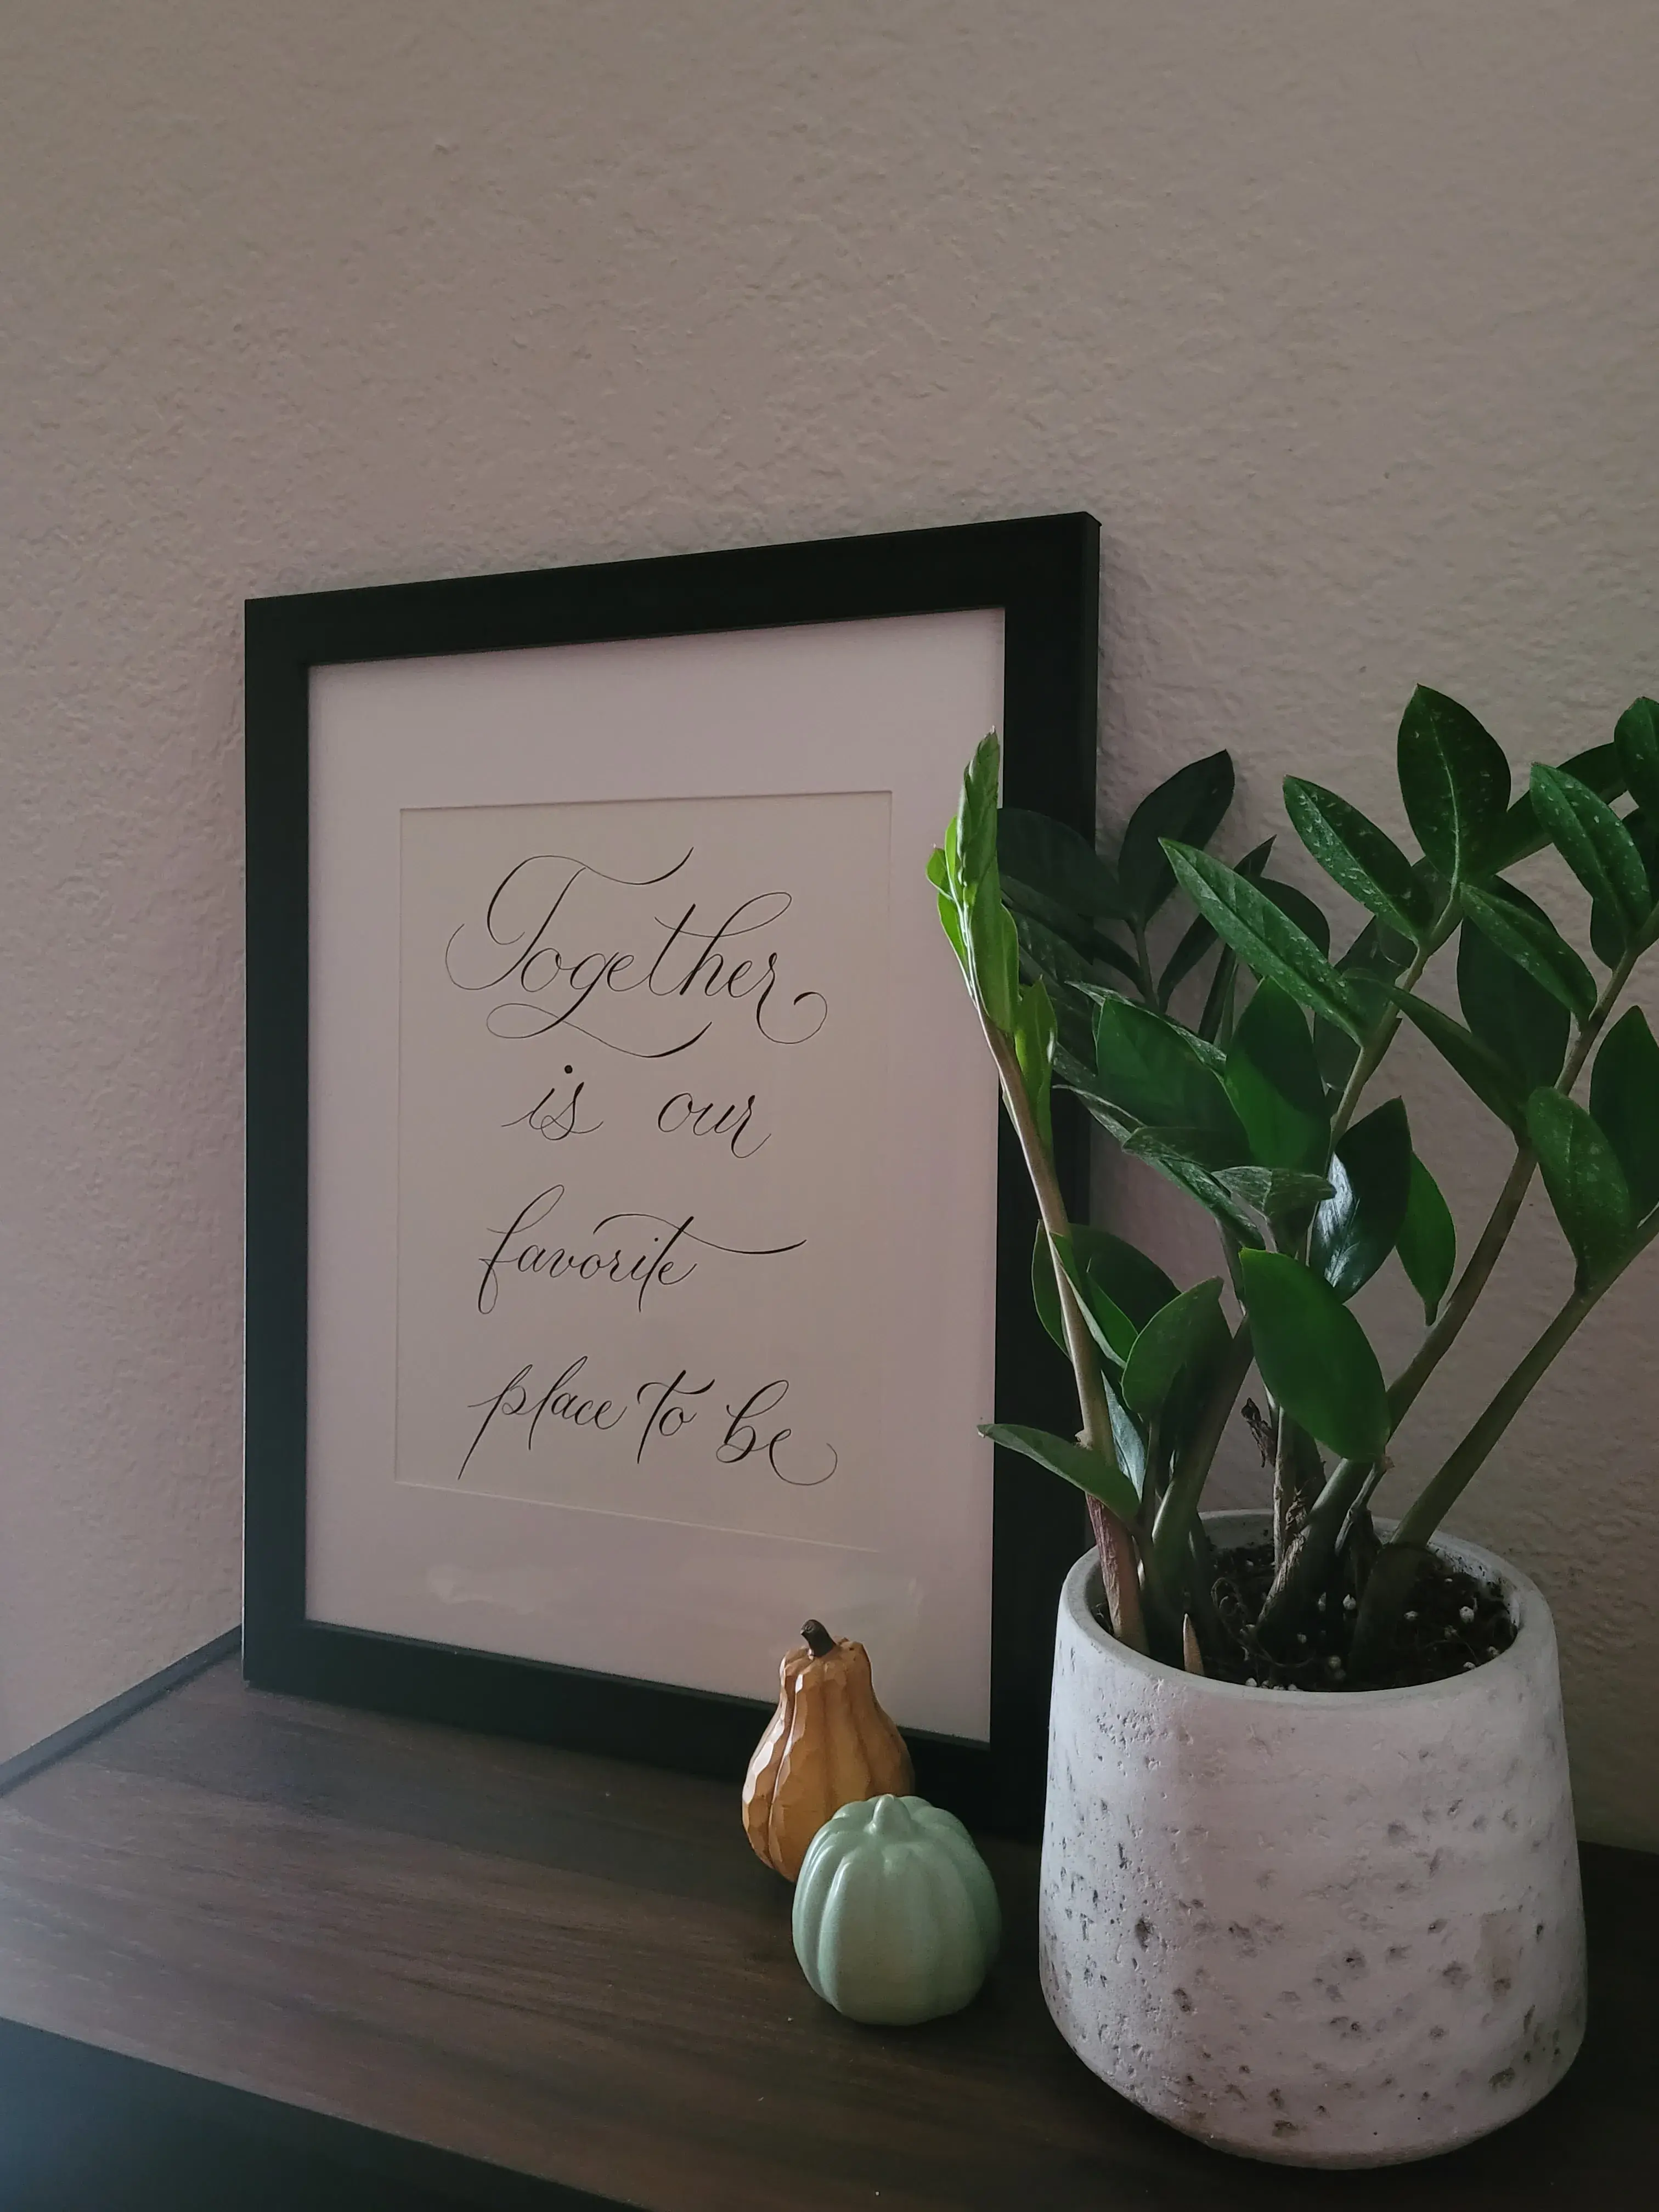 Together
is our
favorite
place to be